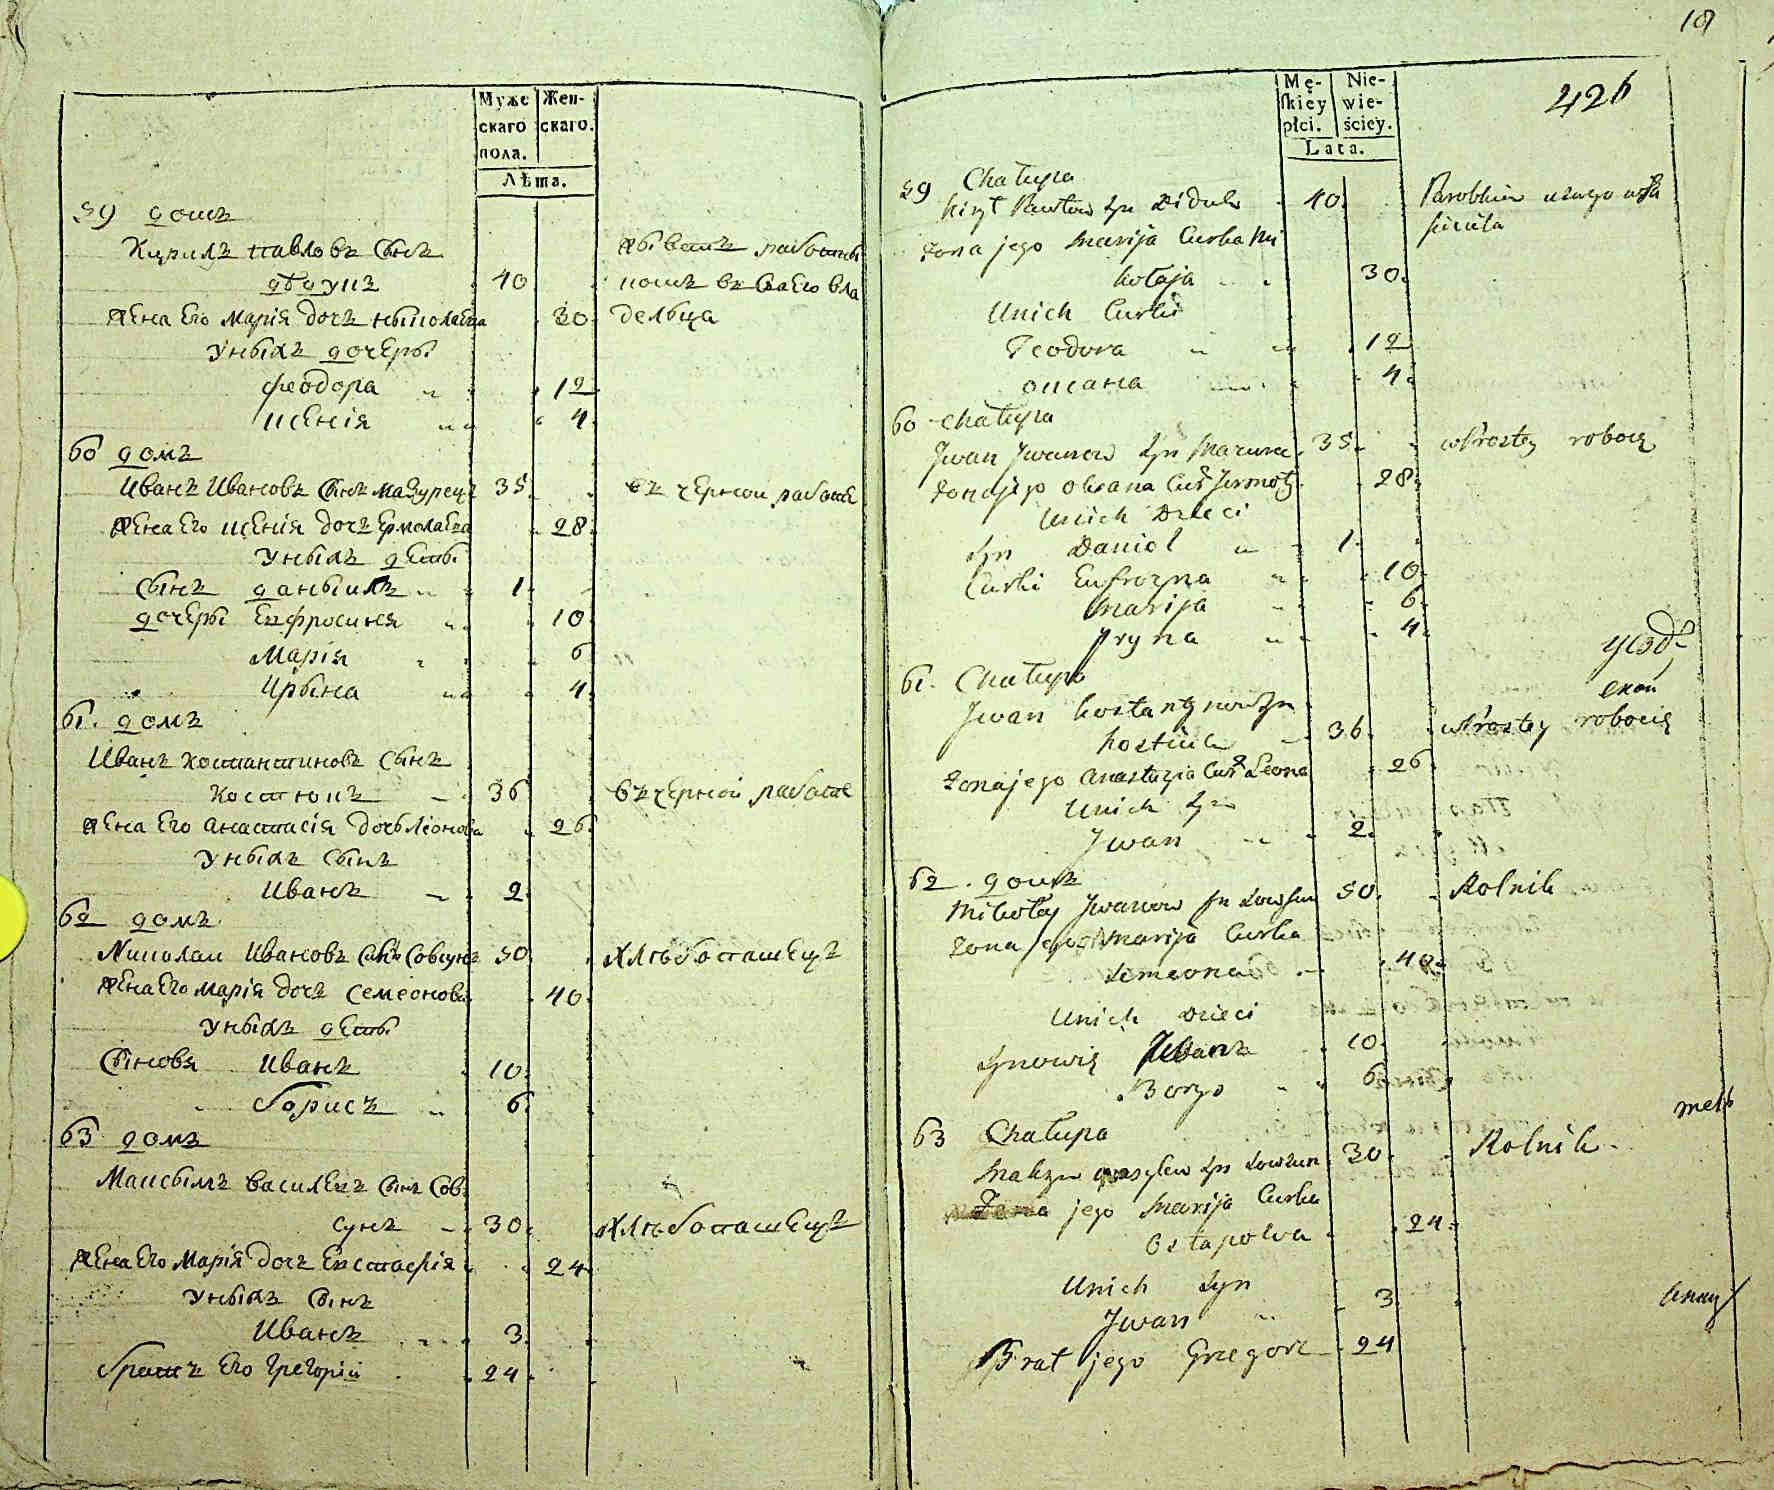 Муже
скаго
пола.
Жен-
скаго.
Лѣта.
59 домъ
Кирилъ павловъ сынъ
дѣдукъ 40
бываетъ работни
комъ въ своего вла
дельца
жена Его Марія дочь николаева 30
Унихъ дочери
Феодора 12
ксенія 4
60 домъ
Иванъ Ивановъ сынъ мазурецъ 35 въ черной работе
жена Его ксенія дочь Ермолаева 28
Унихъ дети
сынъ даныилъ 1
дочери Екфросинея 10
Марія 6
Ирына 4
61. домъ
Иванъ константиновъ сынъ
костюкъ 36 въ черной работе
жена Его анастасія дочь Леонова 26
Унихъ сынъ
Иванъ 2
62 домъ
Николай Ивановъ сынъ Совсунъ 50 хлѣбопашецъ
жена Его марія дочь семеонова 40
Унихъ дети
сыновя Иванъ 10
борисъ 6
63 домъ
Максымъ василевъ сынъ Сов
сунъ 30 хлѣбопашецъ
жена Его Марія дочь Евстафія 24
Унихъ сынъ
Иванъ 3
братъ Его Григорій 24
18
426
Mę-
skiey
płci.
Nie-
wie-
ściey.
Lata.
59 Chałupa
Kirył Pawłow syn Diduk 40
żona jego Marija Curka Mi
kołaja 30
Unich Curki
Teodora 12
Oxana 4
60 Chałupa
Jwan Jwanow syn Mazurec 35 wProstey robocie
żona jego Oksana 28
Unich Dzieci
syn Daniel 1
Curki Eufrozyna 10
Marija 6
Jryna 4
61. Chałupa
Jwan Kostantynow syn
Kostiuk 36 wProstey robocie
żona jego Anastazia Leona 26
Unich syn
Jwan 2
62. домъ
Mikołay Jwanow syn Sowsun 50 Rolnik
żona jego Marija Curka
Semeona 40
Unich Dzieci
synowie Иванъ 10
Borys 6
63 Chałupa
Maksym Wasylew syn Sowsun 30 Rolnik
żona jego Marija Curka
Ostapowa 24
Unich syn
Jwan 3
Brat jego Grzegorz 24